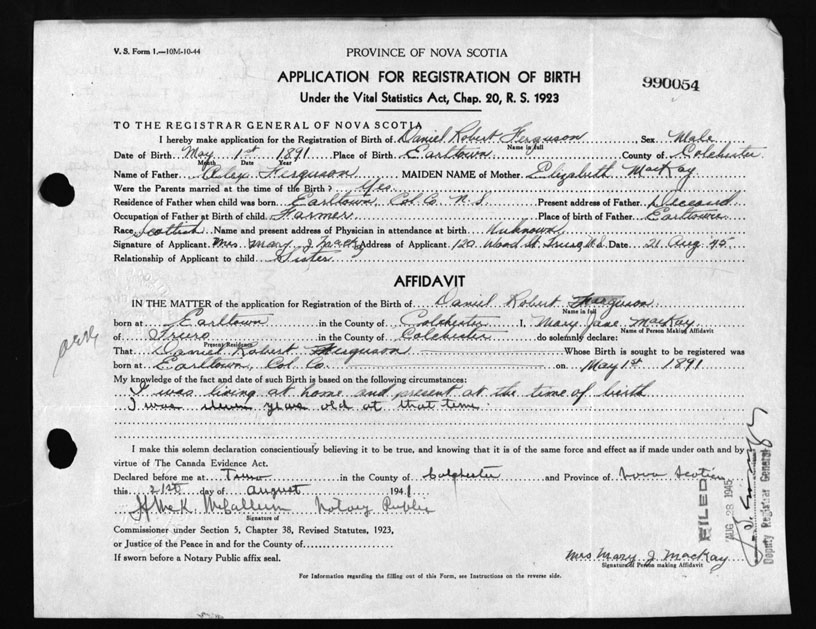 V. S. Form 1.—10M-10-44
PROVINCE OF NOVA SCOTIA
APPLICATION FOR REGISTRATION OF BIRTH
990054
Under the Vital Statistics Act, Chap. 20, R. S. 1923
TO THE REGISTRAR GENERAL OF NOVA SCOTIA
I hereby make application for the Registration of Birth of Daniel Robert Ferguson Sex Male
Name in full
Date of Birth May 1st 1891 Place of Birth Earltown County of Colchester
Month Date Year
Name of Father Alex Ferguson MAIDEN NAME of Mother Elizabeth MacKay
Were the Parents married at the time of the Birth? Yes.
Residence of Father when child was born Earltown, Col. Co. N. S. Present address of Father Deceased
Occupation of Father at Birth of child Farmer Place of birth of Father Earltown
Race Scottish Name and present address of Physician in attendance at birth Unknown
Signature of Applicant Mrs. Mary J MacKay Address of Applicant 120 Wood St. Truro N.S. Date 21 Aug '45
Relationship of Applicant to child Sister
AFFIDAVIT
IN THE MATTER of the application for Registration of the Birth of Daniel Robert Ferguson
Name in full
born at Earltown in the County of Colchester I, Mary Jane MacKay
Name of Person Making Affidavit
of Truro in the County of Colchester do solemnly declare:
Present Residence
That Daniel Robert Ferguson Whose Birth is sought to be registered was
born at Earltown, Col. Co. on May 1st 1891
My knowledge of the fact and date of such Birth is based on the following circumstances:
I was living at home and present at the time of birth
I was eleven years old at that time.
I make this solemn declaration conscientiously believing it to be true, and knowing that it is of the same force and effect as if made under oath and by
virtue of The Canada Evidence Act.
Declared before me at Truro in the County of Colchester and Province of Nova Scotia
this 21st day of August 194
McCallum Notary Public
Signature of
Commissioner under Section 5, Chapter 38, Revised Statutes, 1923,
or Justice of the Peace in and for the County of
If sworn before a Notary Public affix seal.
Mrs Mary J. MacKay
Signature of Person making Affidavit
For Information regarding the filling out of this Form, see Instructions on the reverse side.
FILED
AUG 28 1945
Deputy Registrar General